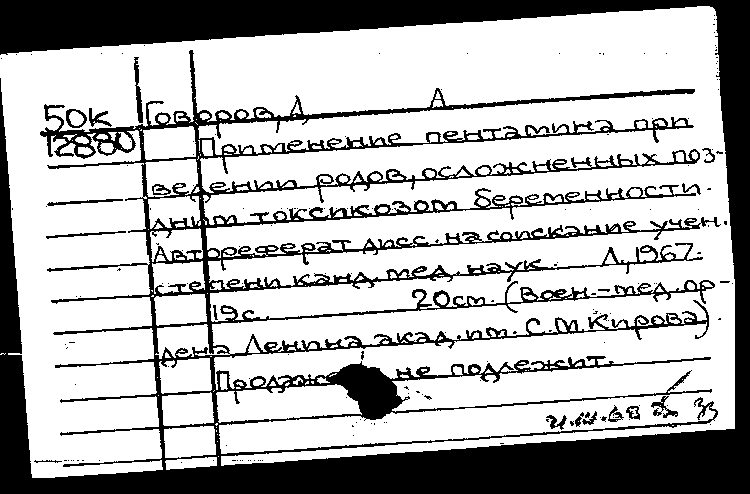 50к Говоров, Д А
12880 Применение пентамина при
ведении родов, осложненных поз-
дним токсикозом беременности.
Автореферат дисс. на соискание учен.
степени канд. мед. наук. Л., 1967.
19с. 20см. (Воен.-мед. ор-
дена Ленина акад. им. С.М. Кирова).
Продаже не подлежит.